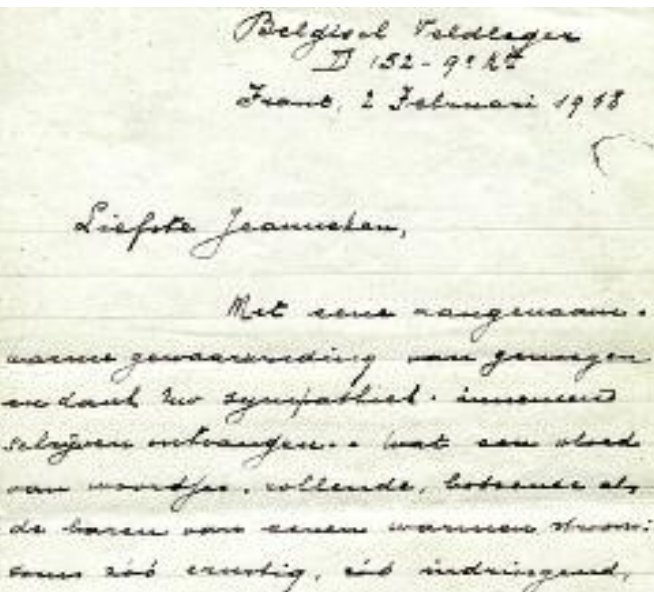 Belgisch Veldleger
D 152 - 9e
Front, 2 Februari 1918
Liefste Jeanneken,
Met eene aangenaam-
warme gewaarwording van genoegen
en dank Uw sympathiek - innemend
schrijven ontvangen. - Wat een vloed
van woordjes, rollende, botsende als
de baren van eenen warmen stroom:
soms zóó ernstig, zóó indringend,